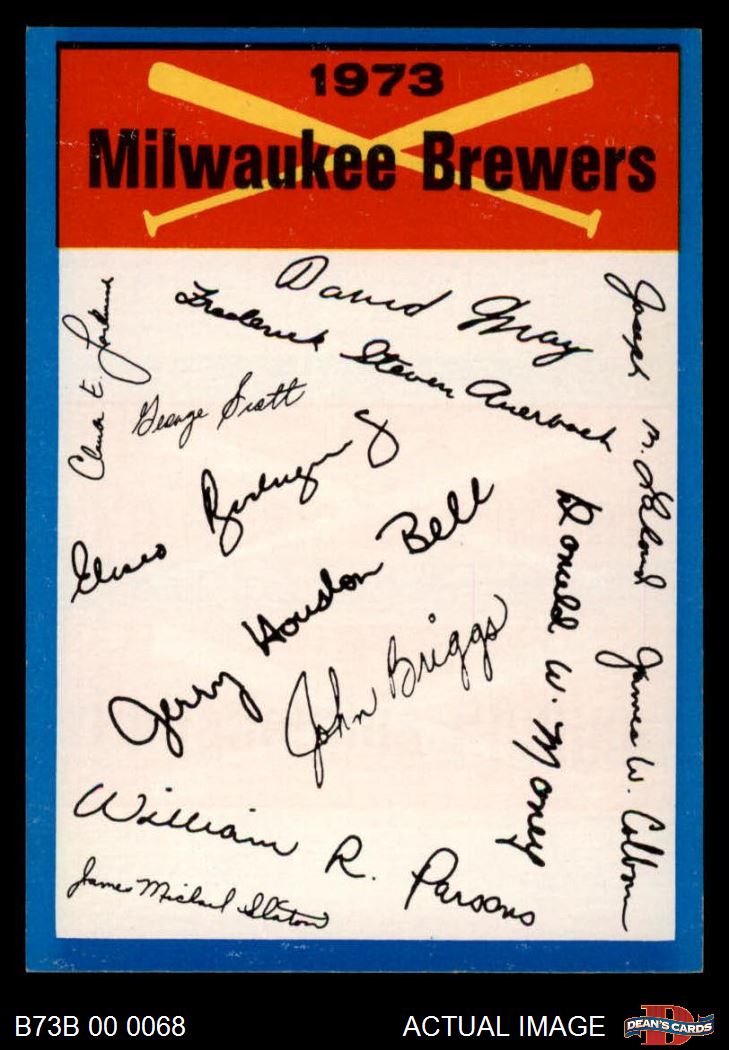 1973
Milwaukee Brewers
David May
Frederick Steven Auerbach
Joseph M. Lahoud
George Scott
Eliseo Rodriguez
Jerry Houston Bell
John Briggs
Donald W. Money
James W. Colborn
William R. Parsons
James Michael Slaton
B73B 00 0068
ACTUAL IMAGE
D
DEAN'S CARDS